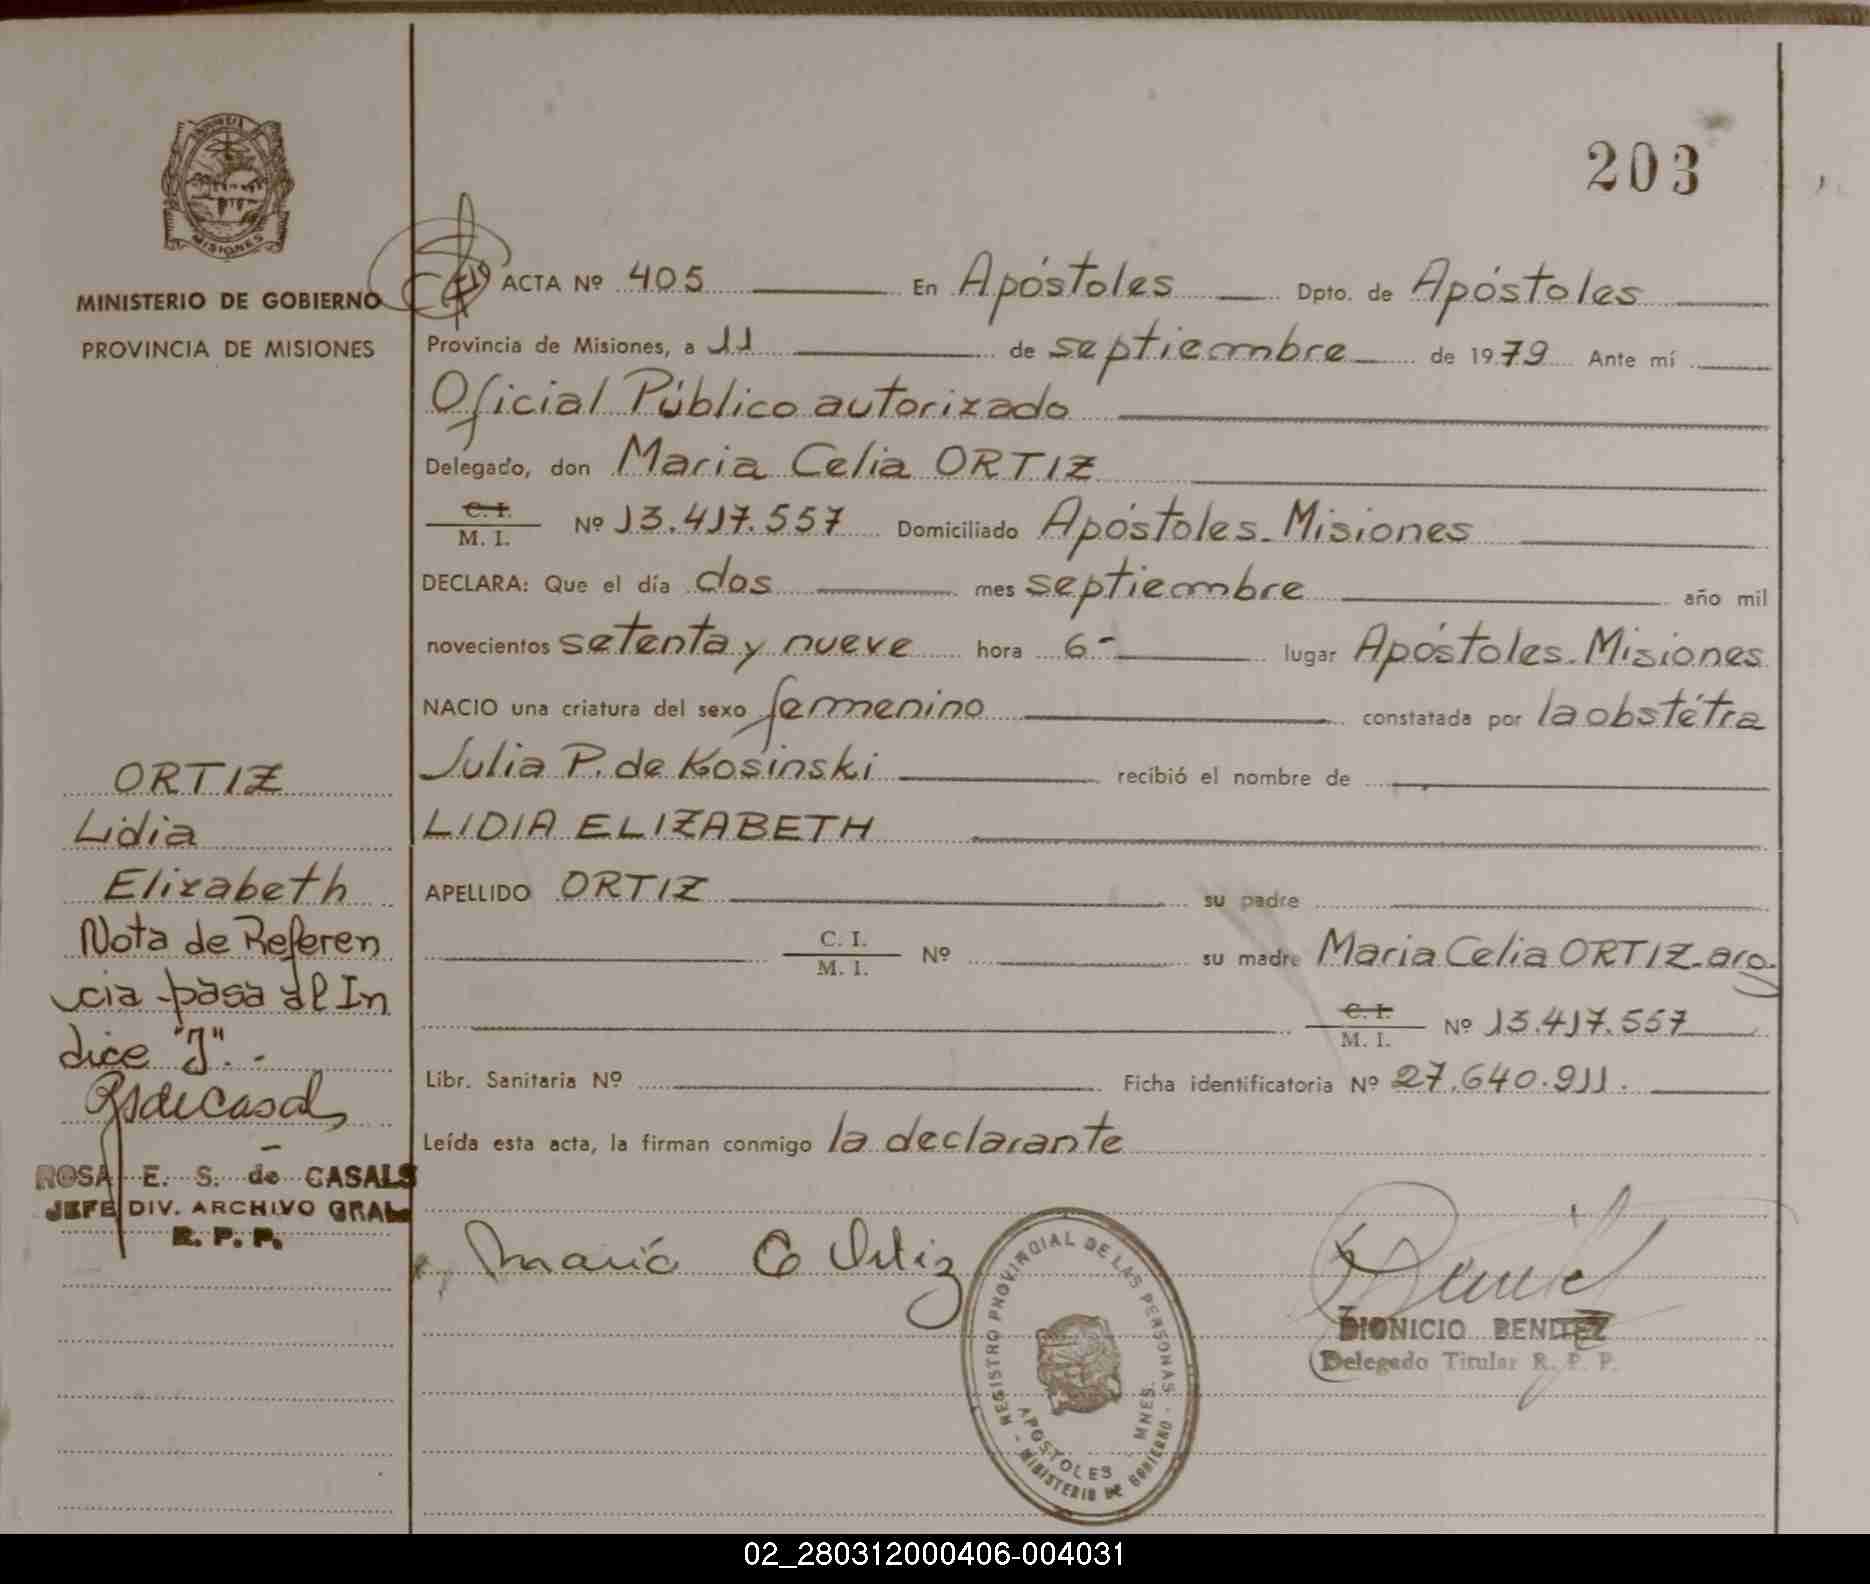 203
MISIONES
MINISTERIO DE GOBIERNO
PROVINCIA DE MISIONES
ACTA Nº 405 En Apóstoles Dpto. de Apóstoles
Provincia de Misiones, a 11 de septiembre de 1979 Ante mí
Oficial Público autorizado
Delegado, don Maria Celia ORTIZ
C. I.
M. I. Nº 13.417.557 Domiciliado Apóstoles - Misiones
DECLARA: Que el día dos mes septiembre año mil
novecientos setenta y nueve hora 6- lugar Apóstoles - Misiones
NACIO una criatura del sexo femenino constatada por la obstétra
Julia P. de Kosinski recibió el nombre de
LIDIA ELIZABETH
APELLIDO ORTIZ su padre
C. I.
M. I. Nº su madre Maria Celia ORTIZ - arg.
C. I.
M. I. Nº 13.417.557
Libr. Sanitaria Nº Ficha identificatoria Nº 27.640.911.
Leída esta acta, la firman conmigo la declarante
Maria C Ortiz
REGISTRO PROVINCIAL DE LAS PERSONAS
APOSTOLES - MNES.
MINISTERIO DE GOBIERNO
DIONICIO BENITEZ
Delegado Titular R. P. P.
ORTIZ
Lidia
Elizabeth
Nota de Referen
cia pasa al In
dice "J".-
RSdeCasals
ROSA E. S. de CASALS
JEFE DIV. ARCHIVO GRAL.
R. P. P.
02_280312000406-004031